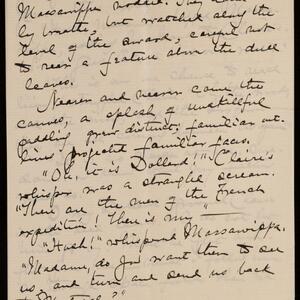 Massawippa nodded. They
ly breath, but watched along the
level of the sward, careful not
to rear a feature above the dead
leaves.
Nearer and nearer came the
canoes, a splash of unskillful
paddling grew distinct, familiar out-
lines projected familiar faces.
"Oh, it is Dollard!" Claire's
whisper was a strangled scream.
"There are the men of the French
expedition! There is my ———
"Hush!" whispered Massawippa.
"Madame, do you want them to see
us, and turn and send us back
to